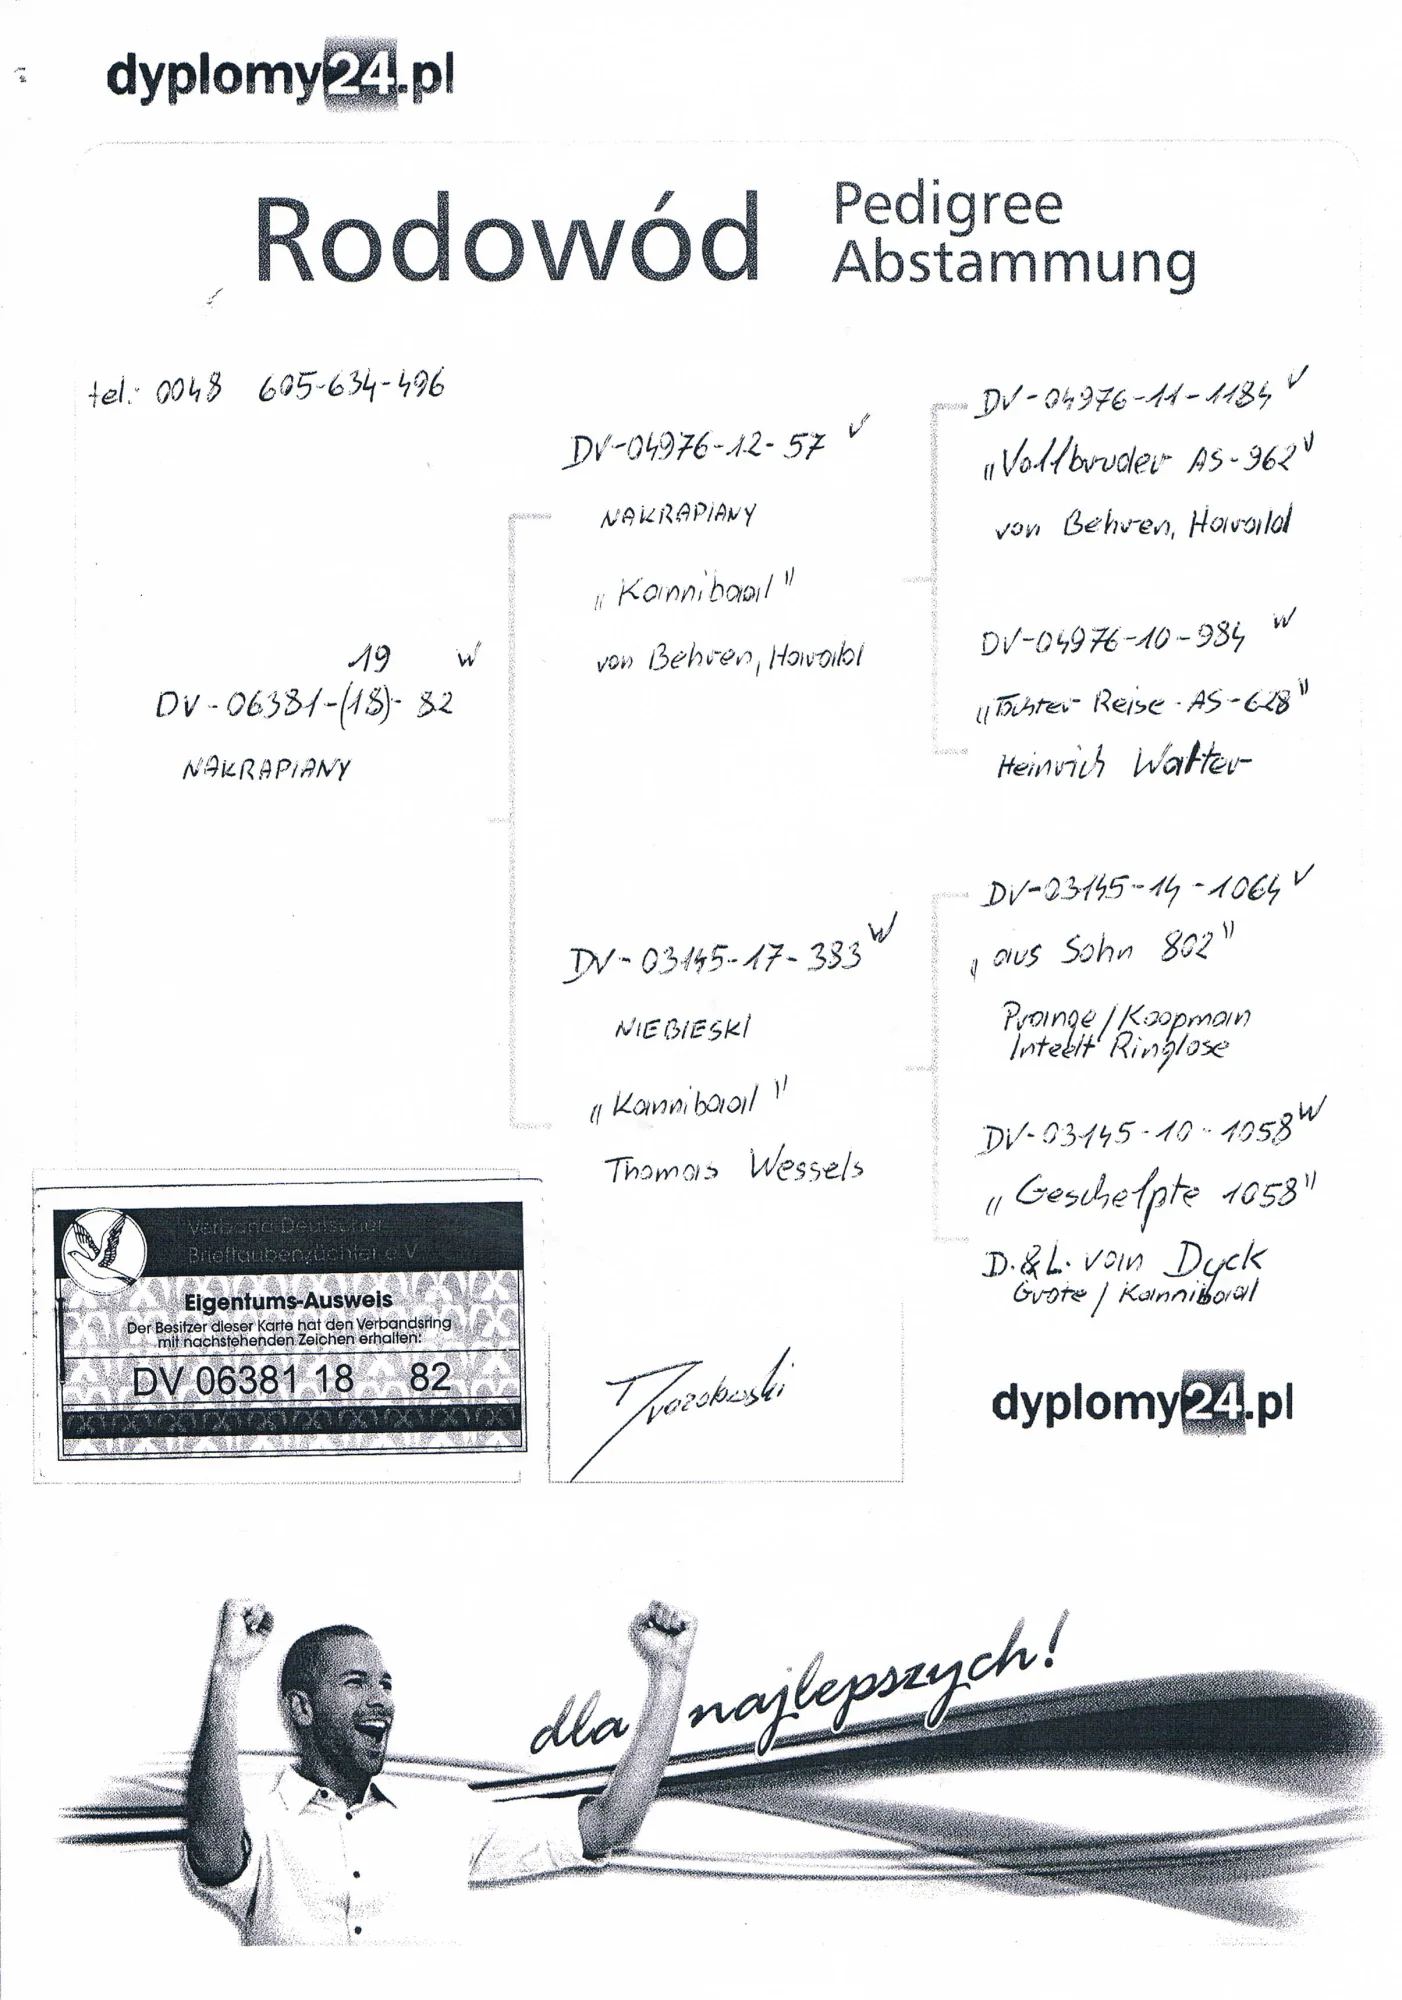 dyplomy24.pl
Rodowód
Pedigree
Abstammung
tel.: 0048 605-634-496
19 W
DV-06381-(18)-82
NAKRAPIANY
DV-04976-12-57 V
NAKRAPIANY
„Kannibaal”
von Behren, Harald
DV-03145-17-383 W
NIEBIESKI
„Kannibaal”
Thomas Wessels
DV-04976-11-1184 V
„Vollbruder AS-962”
von Behren, Harald
DV-04976-10-984 W
„Tochter Reise-AS-628”
Heinrich Walter
DV-03145-14-1064 V
„aus Sohn 802”
Prange/Koopman
Inteelt Ringlose
DV-03145-10-1058 W
„Geschelpte 1058”
D.&L. van Dyck
Grote / Kannibaal
Verband Deutscher
Brieftaubenzüchter e.V.
Eigentums-Ausweis
Der Besitzer dieser Karte hat den Verbandsring
mit nachstehenden Zeichen erhalten:
DV 06381 18 82
dyplomy24.pl
dla najlepszych!